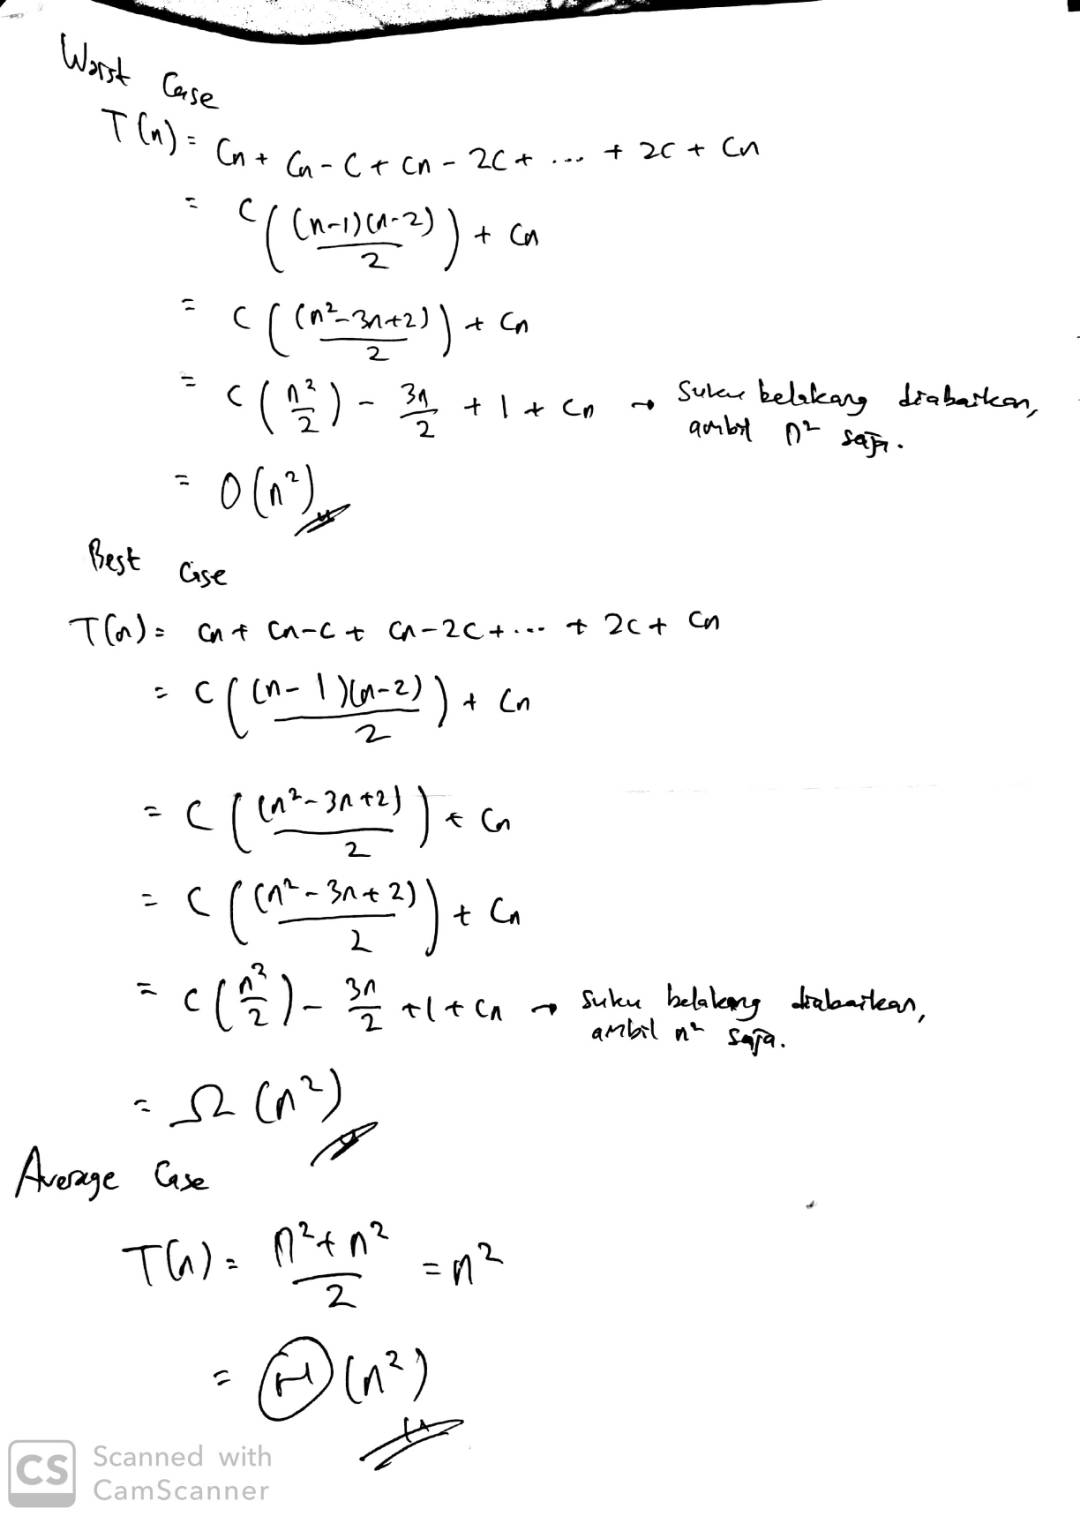 Worst Case
T(n) = Cn + Cn - C + Cn - 2C + ... + 2C + Cn
= C( (n-1)(n-2) / 2 ) + Cn
= C( (n²-3n+2) / 2 ) + Cn
= C( n² / 2 ) - 3n / 2 + 1 + Cn → Suku belakang diabaikan,
ambil n² saja.
= O(n²)
Best Case
T(n) = Cn + Cn - C + Cn - 2C + ... + 2C + Cn
= C( (n-1)(n-2) / 2 ) + Cn
= C( (n²-3n+2) / 2 ) + Cn
= C( (n²-3n+2) / 2 ) + Cn
= C( n² / 2 ) - 3n / 2 + 1 + Cn → suku belakang diabaikan,
ambil n² saja.
= Ω(n²)
Average Case
T(n) = n² + n² / 2 = n²
= Θ(n²)
CS Scanned with
CamScanner